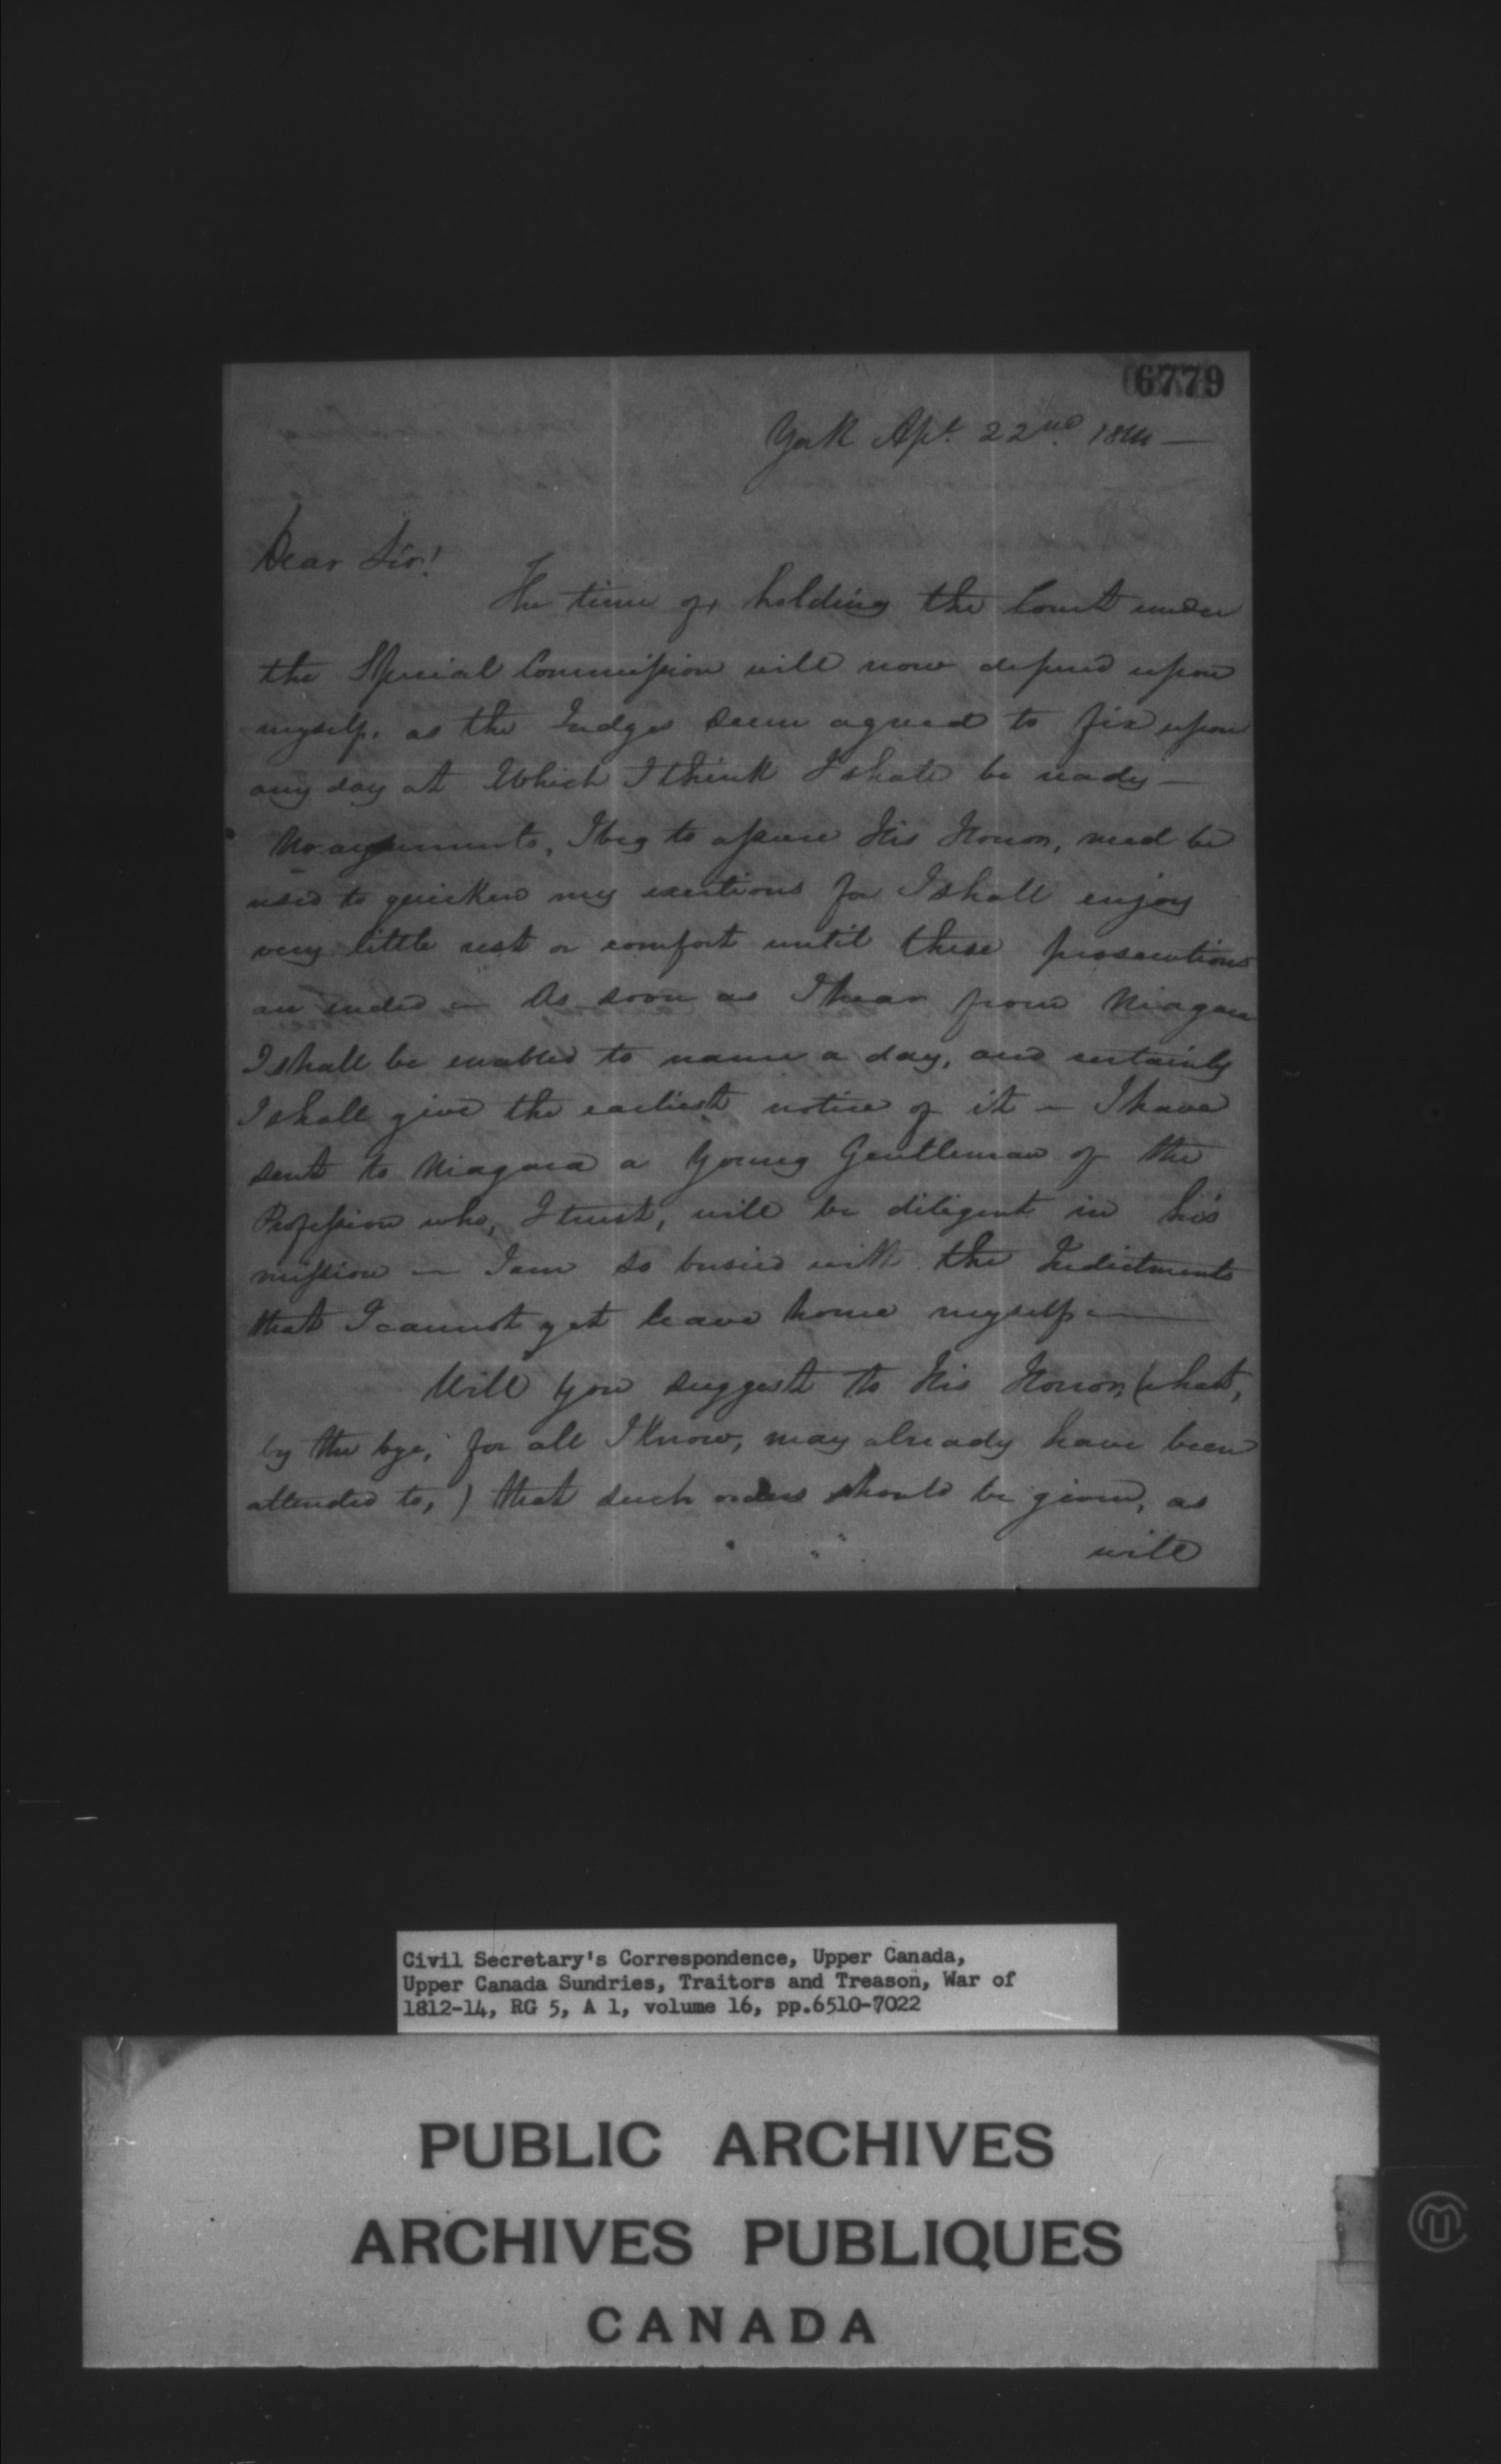 6779
York Apl. 22nd 1814 —
Dear Sir!
The time of holding the Court under
the Special Commission will now depend upon
myself, as the Judges seem agreed to fix upon
any day at Which I think I shall be ready —
No arguments, I beg to assure His Honor, need be
used to quicken my exertions for I shall enjoy
very little rest or comfort until these prosecutions
are ended — As soon as I hear from Niagara
I shall be enabled to name a day, and certainly
I shall give the earliest notice of it — I have
sent to Niagara a Young Gentleman of the
Profession who, I trust, will be diligent in his
mission — I am so busied with the Indictments
that I cannot yet leave home myself —
Will you suggest to His Honor, (what,
by the bye, for all I know, may already have been
attended to,) that such orders should be given, as
will
Civil Secretary's Correspondence, Upper Canada,
Upper Canada Sundries, Traitors and Treason, War of
1812-14, RG 5, A 1, volume 16, pp.6510-7022
PUBLIC ARCHIVES
ARCHIVES PUBLIQUES
CANADA